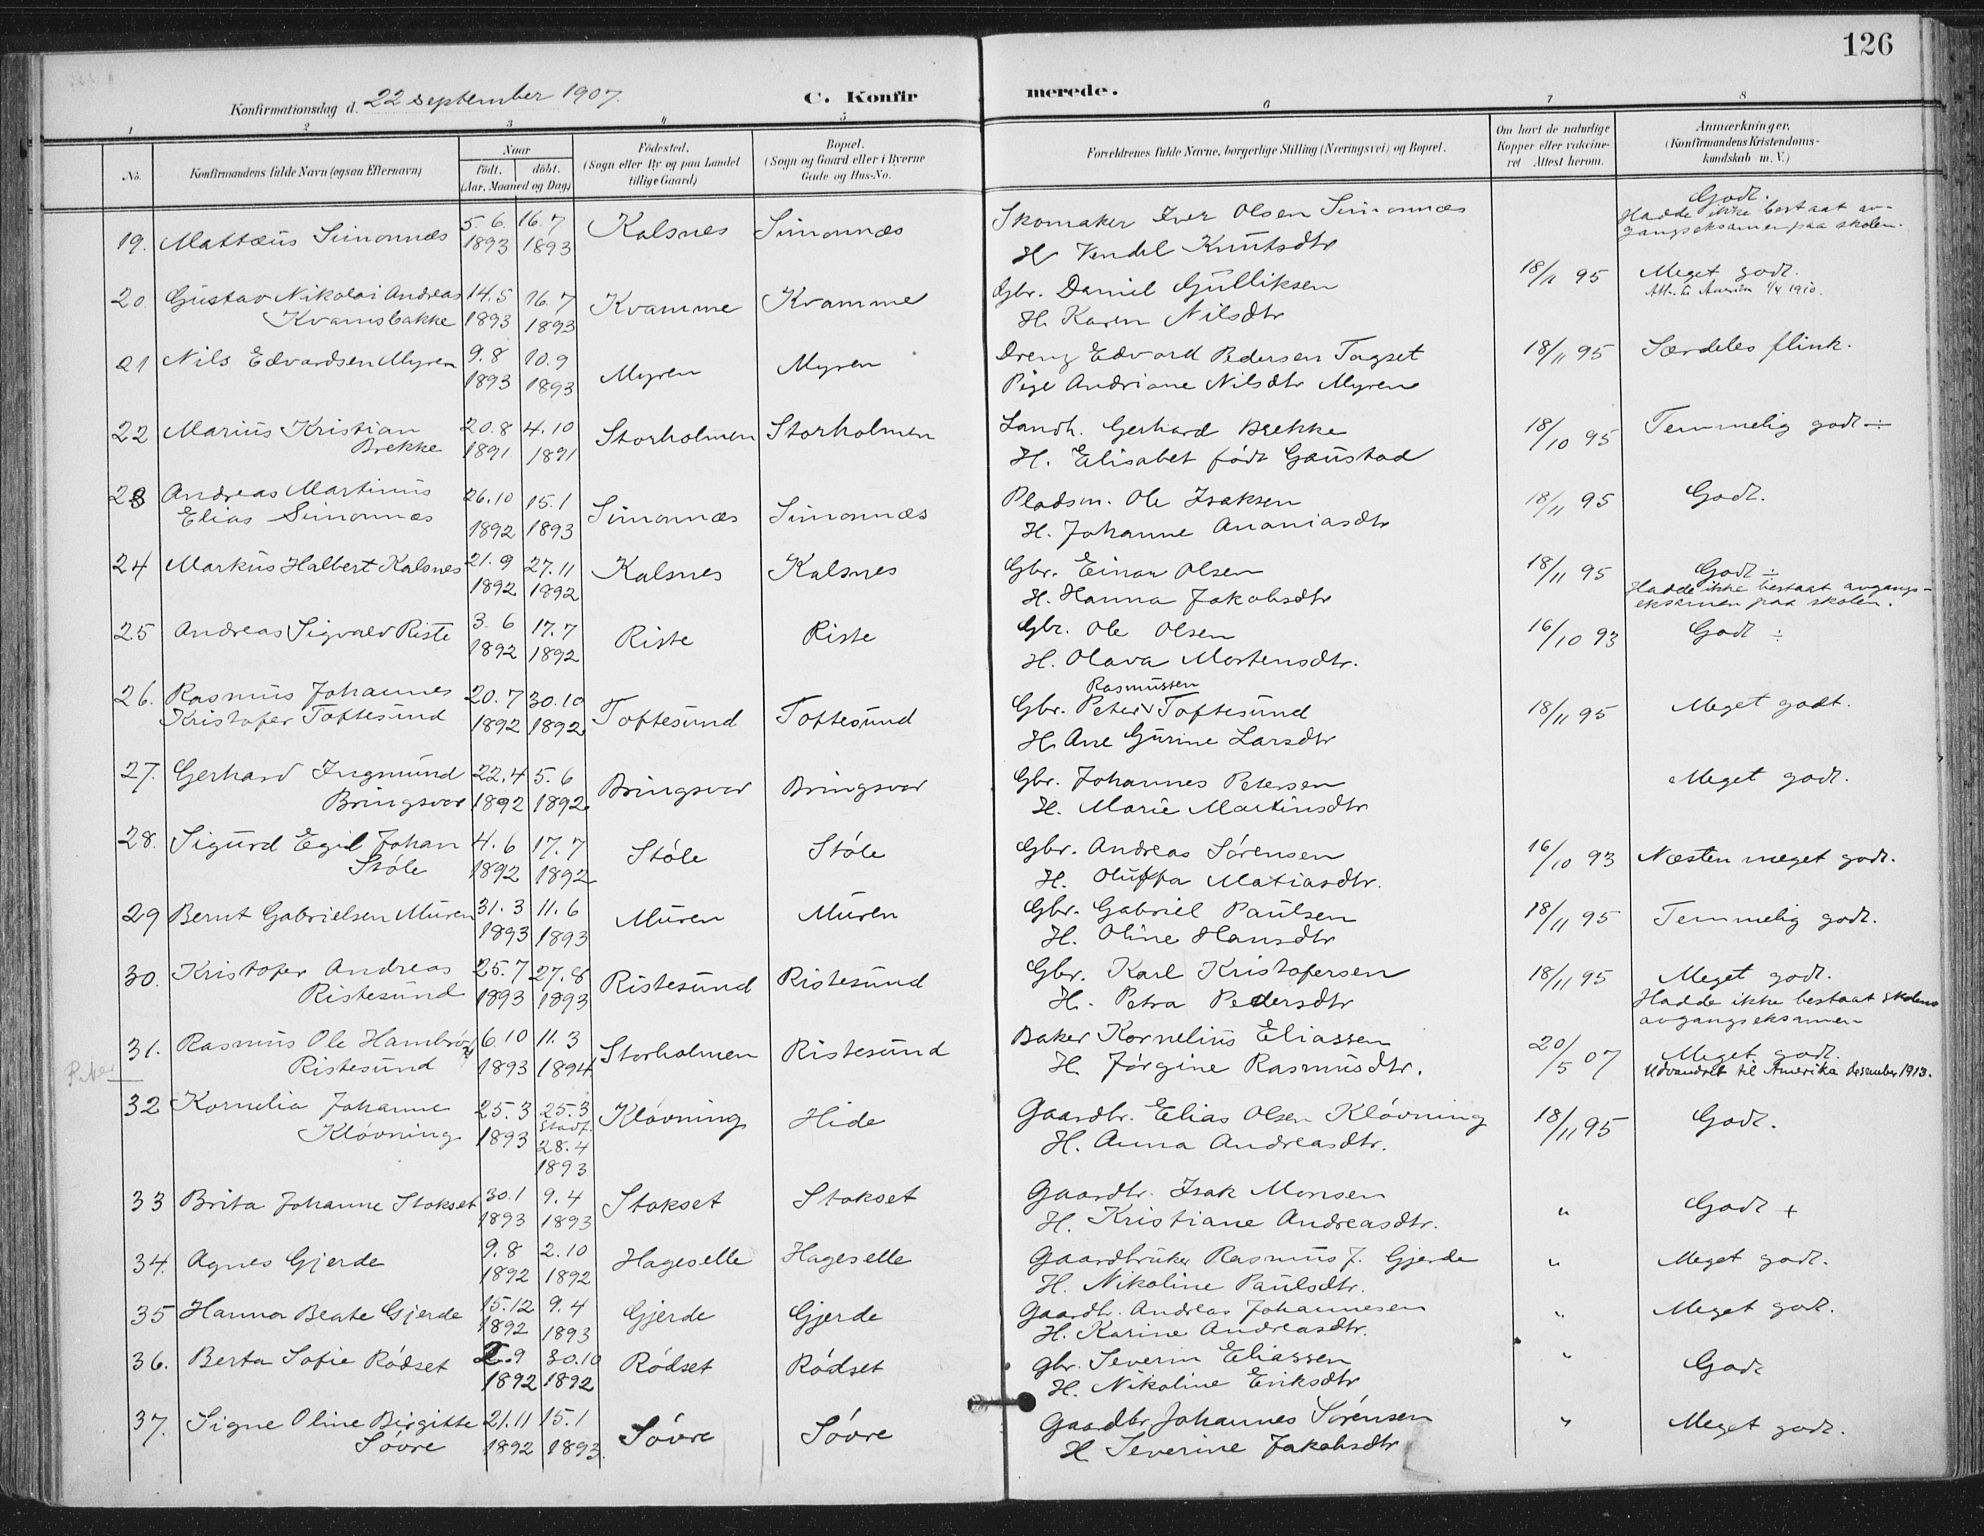 126
Konfirmationsdag d. 22 september 1907. C. Konfirmerede.
1 2 3 4 5 6 7 8
No. Konfirmandens fulde Navn (ogsaa Efternavn) Naar födt. döbt. (Aar, Maaned og Dag) Födested. (Sogn eller By og paa Landet tillige Gaard) Bopæl. (Sogn og Gaard eller i Byerne Gade og Hus-No. Forældrenes fulde Navne, borgerlige Stilling (Næringsvei) og Bopæl. Om havt de naturlige Kopper eller vakcineret Attest herom. Anmærkninger. (Konfirmandens Kristendomskundskab m. V.)
19. Mattæus Simonnæs 5.6 1893 16.7 1893 Kalsnes Simonnæs Skomaker Iver Olsen Simonnæs
H. Vendel Knutsdtr
Godt. Hadde ikke bestaat av-
gangseksamen paa skolen.
20. Gustav Nikolai Andreas 14.5 16.7 Kvamme Kvamme Gbr. Daniel Gulliksen 18/11 95 Meget godt.
Kvamsbakke 1893 1893 H. Karen Nilsdtr Att. til Amerika 1/4 1910.
21 Nils Edvardsen Myren 9.8 1893 10.9 1893 Myren Myren Dreng Edvard Pedersen Tagset 18/11 95 Særdeles flink.
Pige Andriane Nilsdtr Myren
22 Marius Kristian 20.8 4.10 Storholmen Storholmen Landh. Gerhard Brekke 18/10 95 Temmelig godt ÷
Brekke 1891 1891 H. Elisabet født Gaustad
23 Andreas Martinus 26.10 15.1 Simonnæs Simonnæs Pladsm. Ole Isaksen 18/11 95 Godt.
Elias Simonnæs 1892 1893 H. Johanne Ananiasdtr
24 Markus Halbert Kalsnes 21.9 1892 27.11 1892 Kalsnes Kalsnes Gbr. Einar Olsen 18/11 95 Godt ÷
H. Hanna Jakobsdtr Hadde ikke bestaat avgangs-
eksamen paa skolen.
25 Andreas Sigvald Riste 3.6 1892 17.7 1892 Riste Riste Gbr. Ole Olsen 16/10 93 Godt ÷
H. Olava Mortensdtr.
26. Rasmus Johannes 20.7 30.10 Toftesund Toftesund Gbr. Peter Rasmussen Toftesund 18/11 95 Meget godt.
Kristofer Toftesund 1892 1892 H. Ane Gurine Larsdtr
27. Gerhard Ingmund 22.4 5.6 Bringsvor Bringsvor Gbr. Johannes Petersen Meget godt.
Bringsvor 1892 1892 H. Marie Martinsdtr
28. Sigurd Egil Johan 4.6 17.7 Støle Støle Gbr. Andreas Sørensen 16/10 93 Næsten meget godt.
Støle 1892 1892 H. Oluffa Matiasdtr.
29 Bernt Gabrielsen Muren 31.3 1893 11.6 1893 Muren Muren Gbr. Gabriel Paulsen 18/11 95 Temmelig godt.
H. Oline Hansdtr
30. Kristofer Andreas 25.7 27.8 Ristesund Ristesund Gbr. Karl Kristofersen 18/11 95 Meget godt.
Ristesund 1893 1893 H. Petra Pedersdtr Hadde ikke bestaat skolens
avgangseksamen
31. Rasmus Ole Hambrø 6.10 11.3 Storholmen Ristesund Baker Kornelius Eliassen 20/5 07 Meget godt.
Ristesund 1893 1894 H. Jørgine Rasmusdtr. Udvandret til Amerika desember 1913.
32 Kornelia Johanne 25.3 25.3 Kløvning Hide Gaardbr. Elias Olsen Kløvning 18/11 95 Godt.
Kløvning 1893 stadf. 28.4 1893 H. Anna Andreasdtr.
33 Brita Johanne Stokset 30.1 1893 9.4 1893 Stokset Stokset Gaardbr. Isak Monsen " Godt +
H. Kristiane Andreasdtr.
34. Agnes Gjerde 9.8 1892 2.10 1892 Hageselle Hageselle Gaardbruker Rasmus J. Gjerde " Meget godt.
H. Nikoline Paulsdtr.
35 Hanna Beate Gjerde 15.12 1892 9.4 1893 Gjerde Gjerde Gaardbr. Andreas Johannesen " Meget godt.
H. Karine Andreasdtr.
36. Berta Sofie Rødset 2.9 1892 30.10 1892 Rødset Rødset Gbr. Severin Eliassen " Godt
H. Nikoline Eriksdtr
37. Signe Oline Birgitte 21.11 15.1 Søvre Søvre Gaardbr. Johannes Sørensen " Meget godt.
Søvre 1892 1893. H. Severine Jakobsdtr